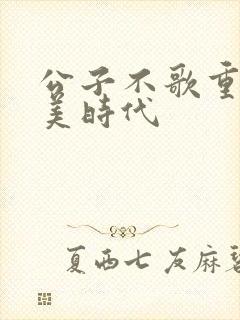 公子不歌重
美時代
夏西七友麻碧